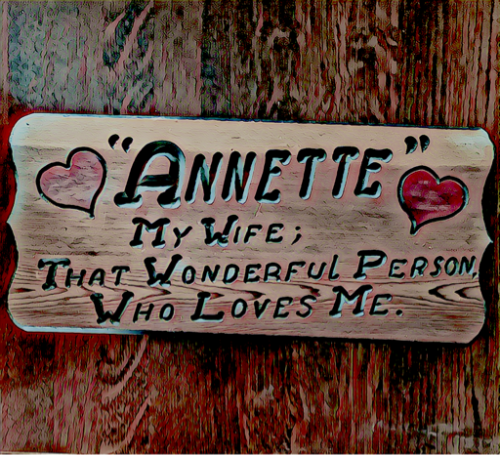 "ANNETTE"
MY WIFE;
THAT WONDERFUL PERSON,
WHO LOVES ME.